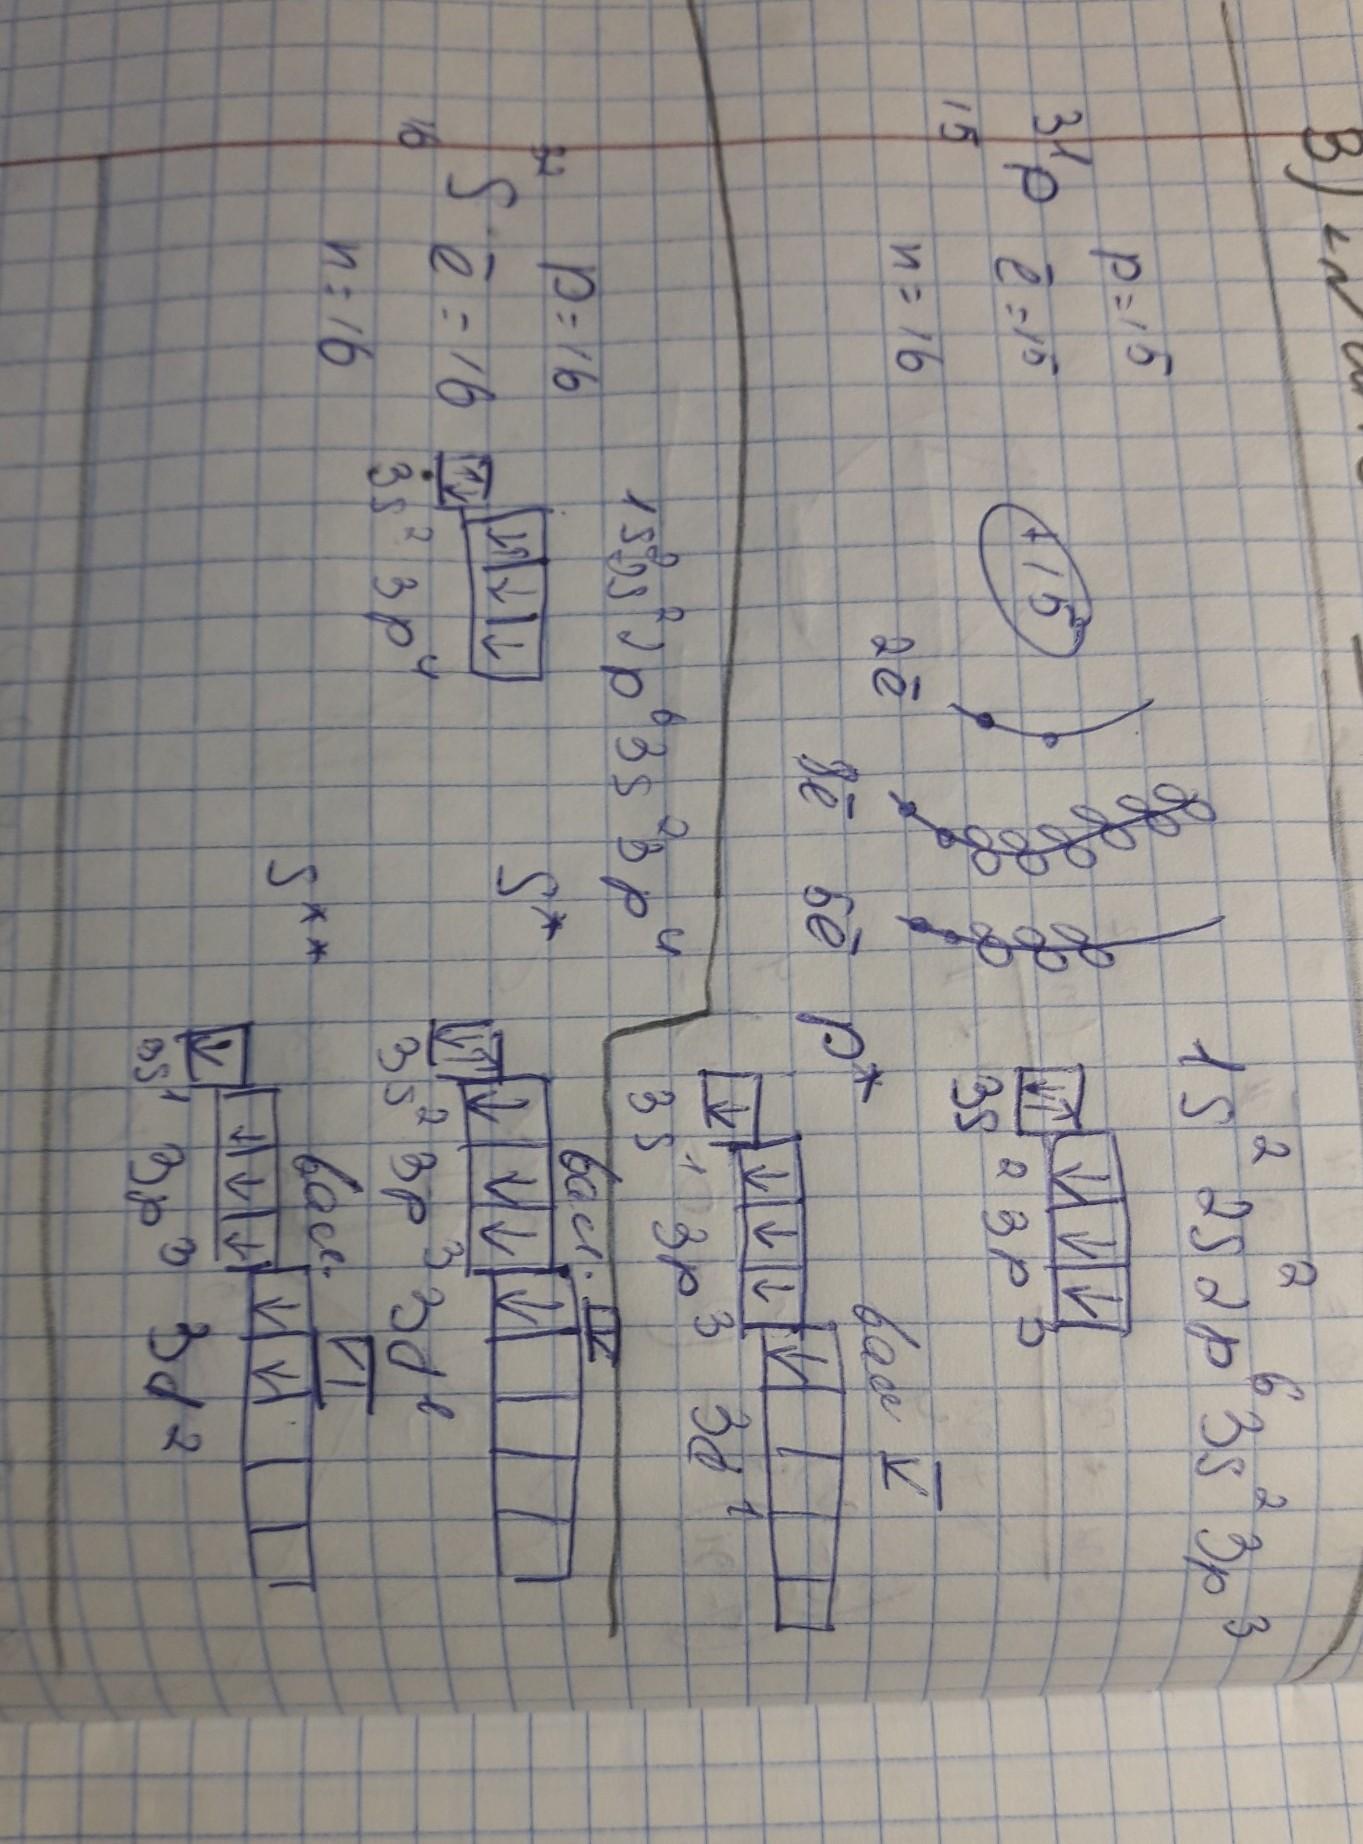 В)
³¹₁₅P p=15
ē=15
n=16
+15
2ē 8ē 5ē
1s² 2s² 2p⁶ 3s² 3p³
3s² 3p³
P* вал V
3s¹ 3p³ 3d¹
³²₁₆S p=16
ē=16
n=16
1s² 2s² 2p⁶ 3s² 3p⁴
3s² 3p⁴
S* вал. IV
3s² 3p³ 3d¹
S** вал. VI
3s¹ 3p³ 3d²